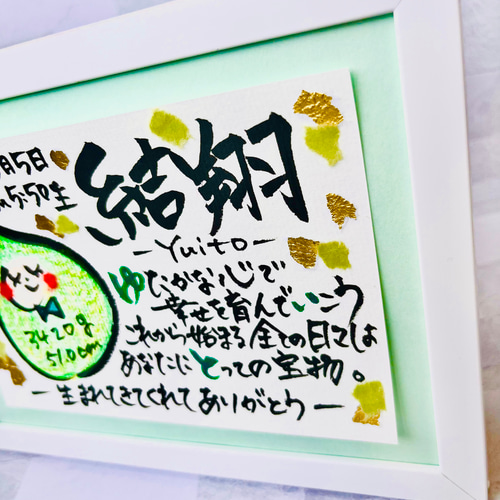 月5日
5:50生
結翔
-Yuito-
3420g
51.0cm
ゆたかな心で
幸せを育んでいこう
これから始まる全ての日々は
あなたにとっての宝物。
-生まれてきてくれてありがとう-